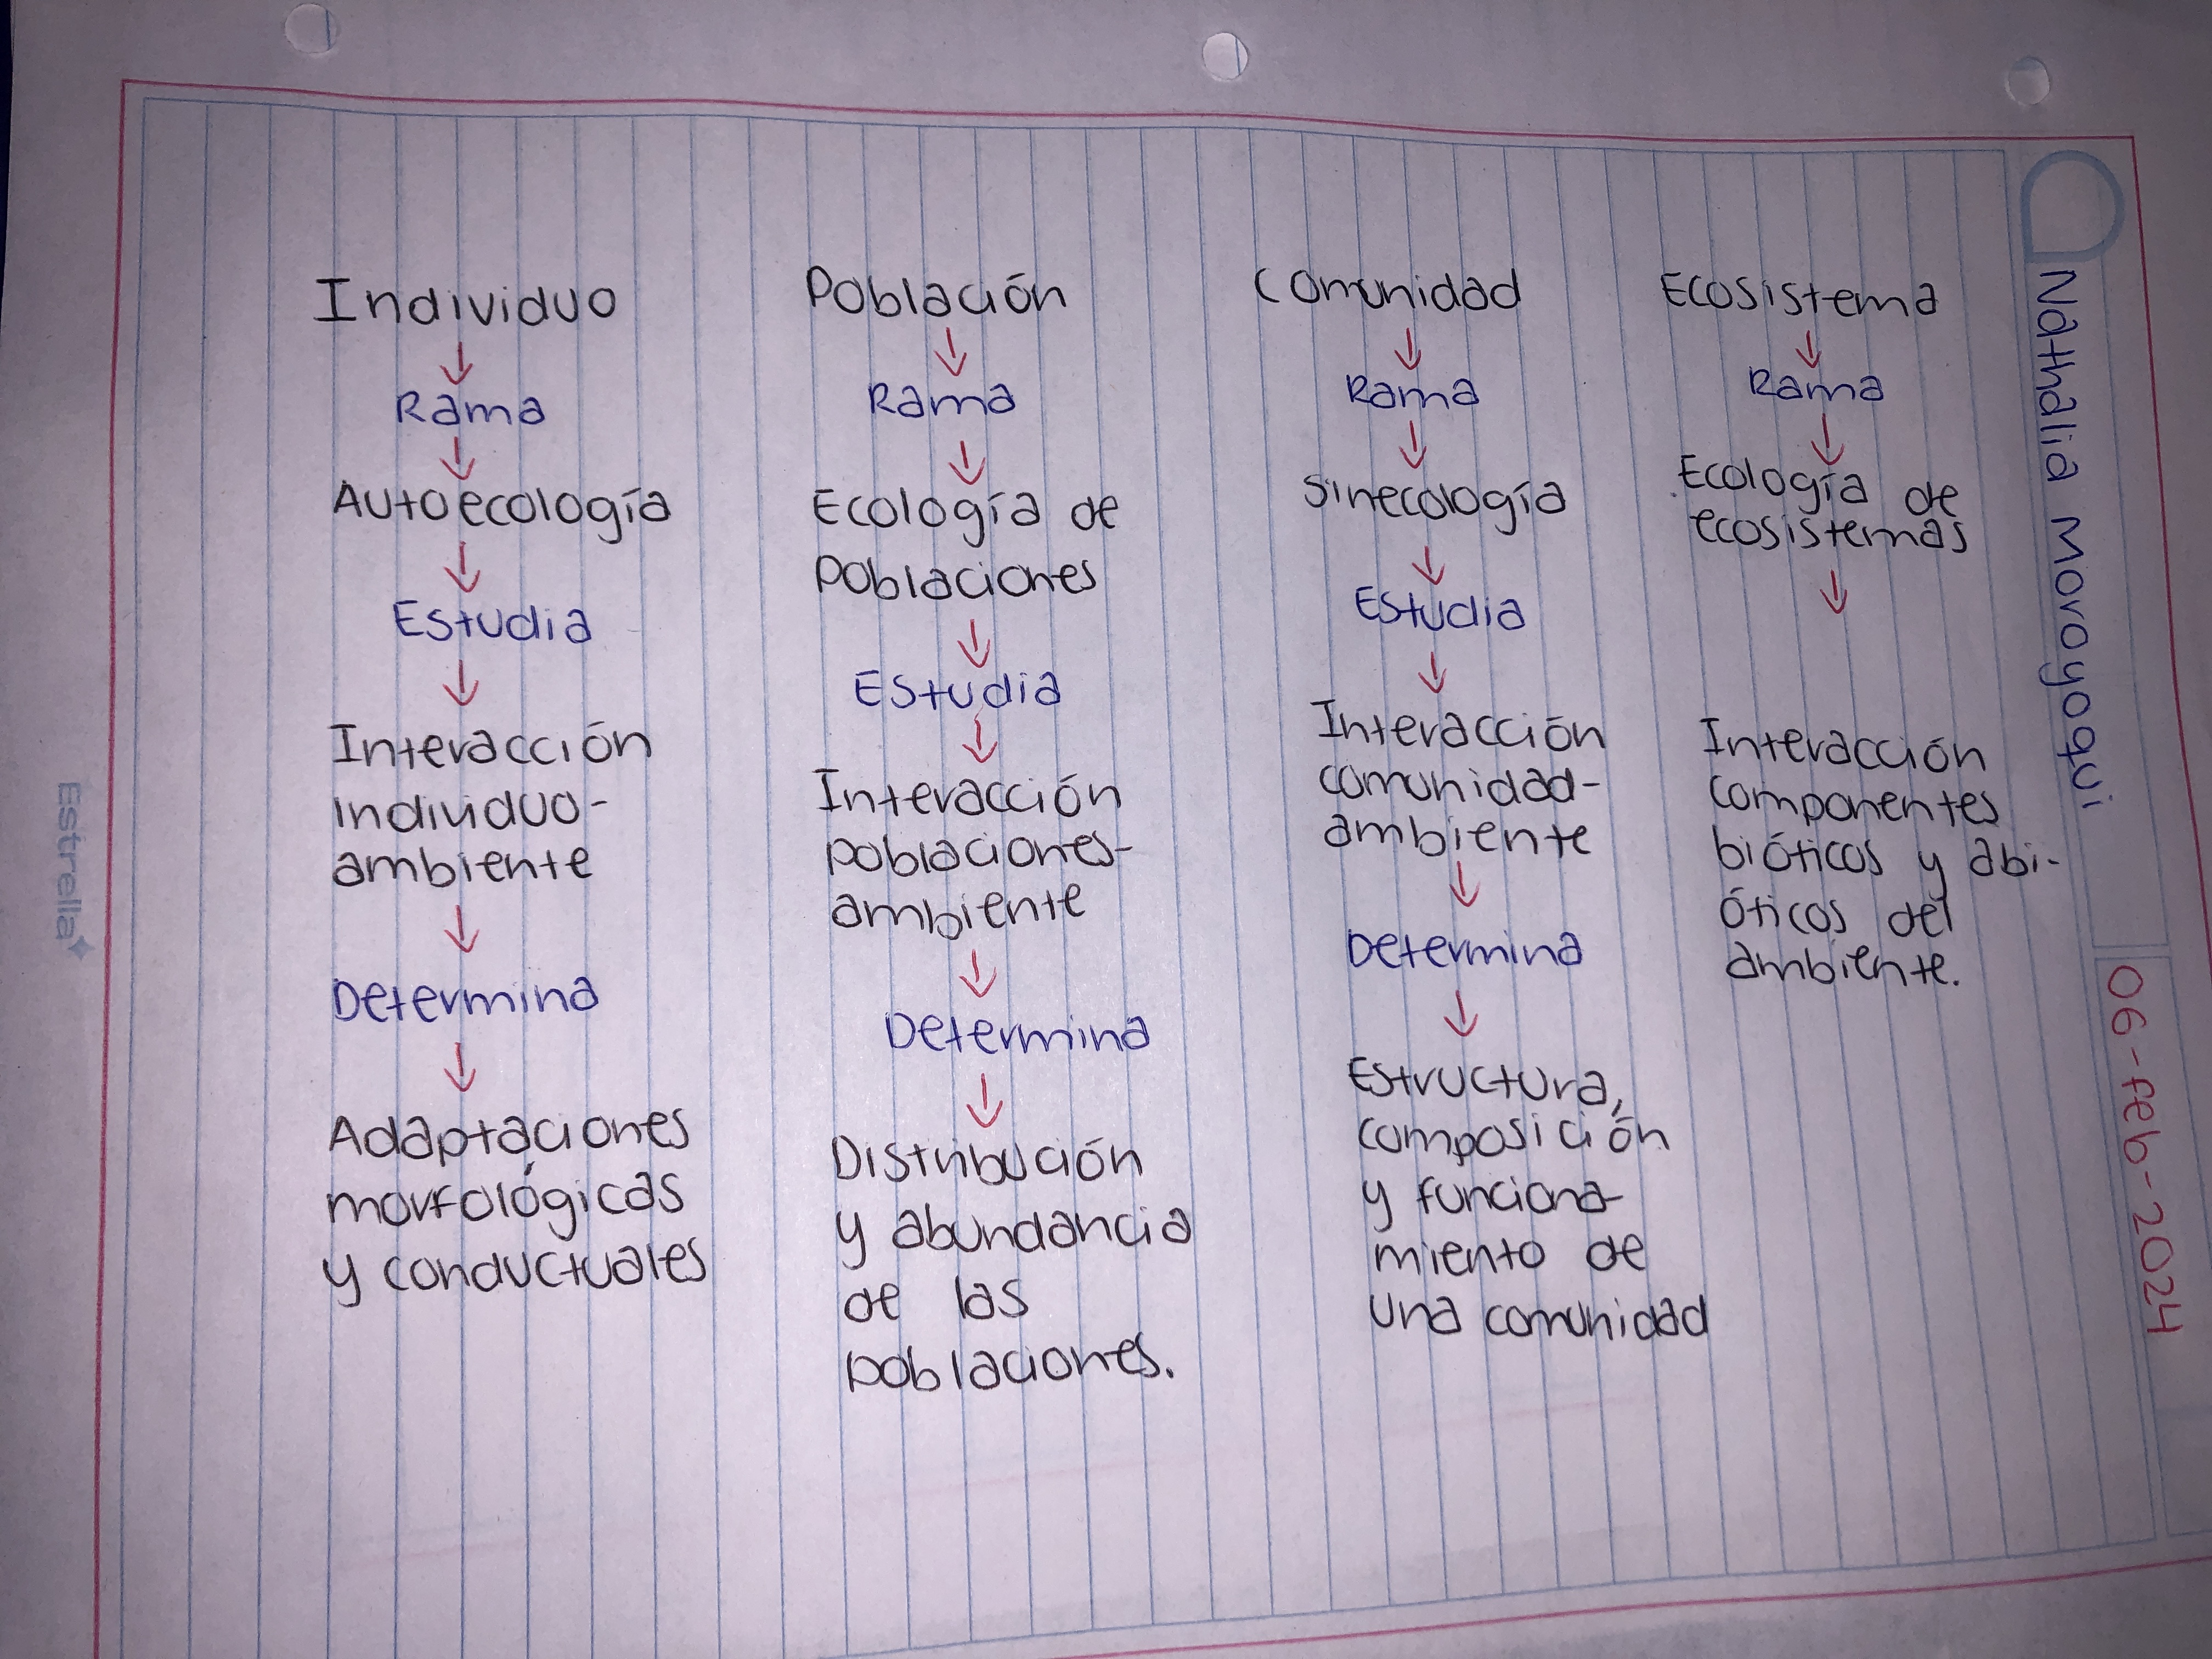 Individuo
Rama
Autoecología
Estudia
Interacción
individuo-
ambiente
Determina
Adaptaciones
morfológicas
y conductuales
Población
Rama
Ecología de
poblaciones
Estudia
Interacción
poblaciones-
ambiente
Determina
Distribución
y abundancia
de las
poblaciones.
Comunidad
Rama
Sinecología
Estudia
Interacción
comunidad-
ambiente
Determina
Estructura,
composición
y funciona-
miento de
una comunidad
Ecosistema
Rama
Ecología de
ecosistemas
Interacción
componentes
bióticos y abi-
óticos del
ambiente.
Nathalia Moroyoqui
06-feb-2024
Estrella